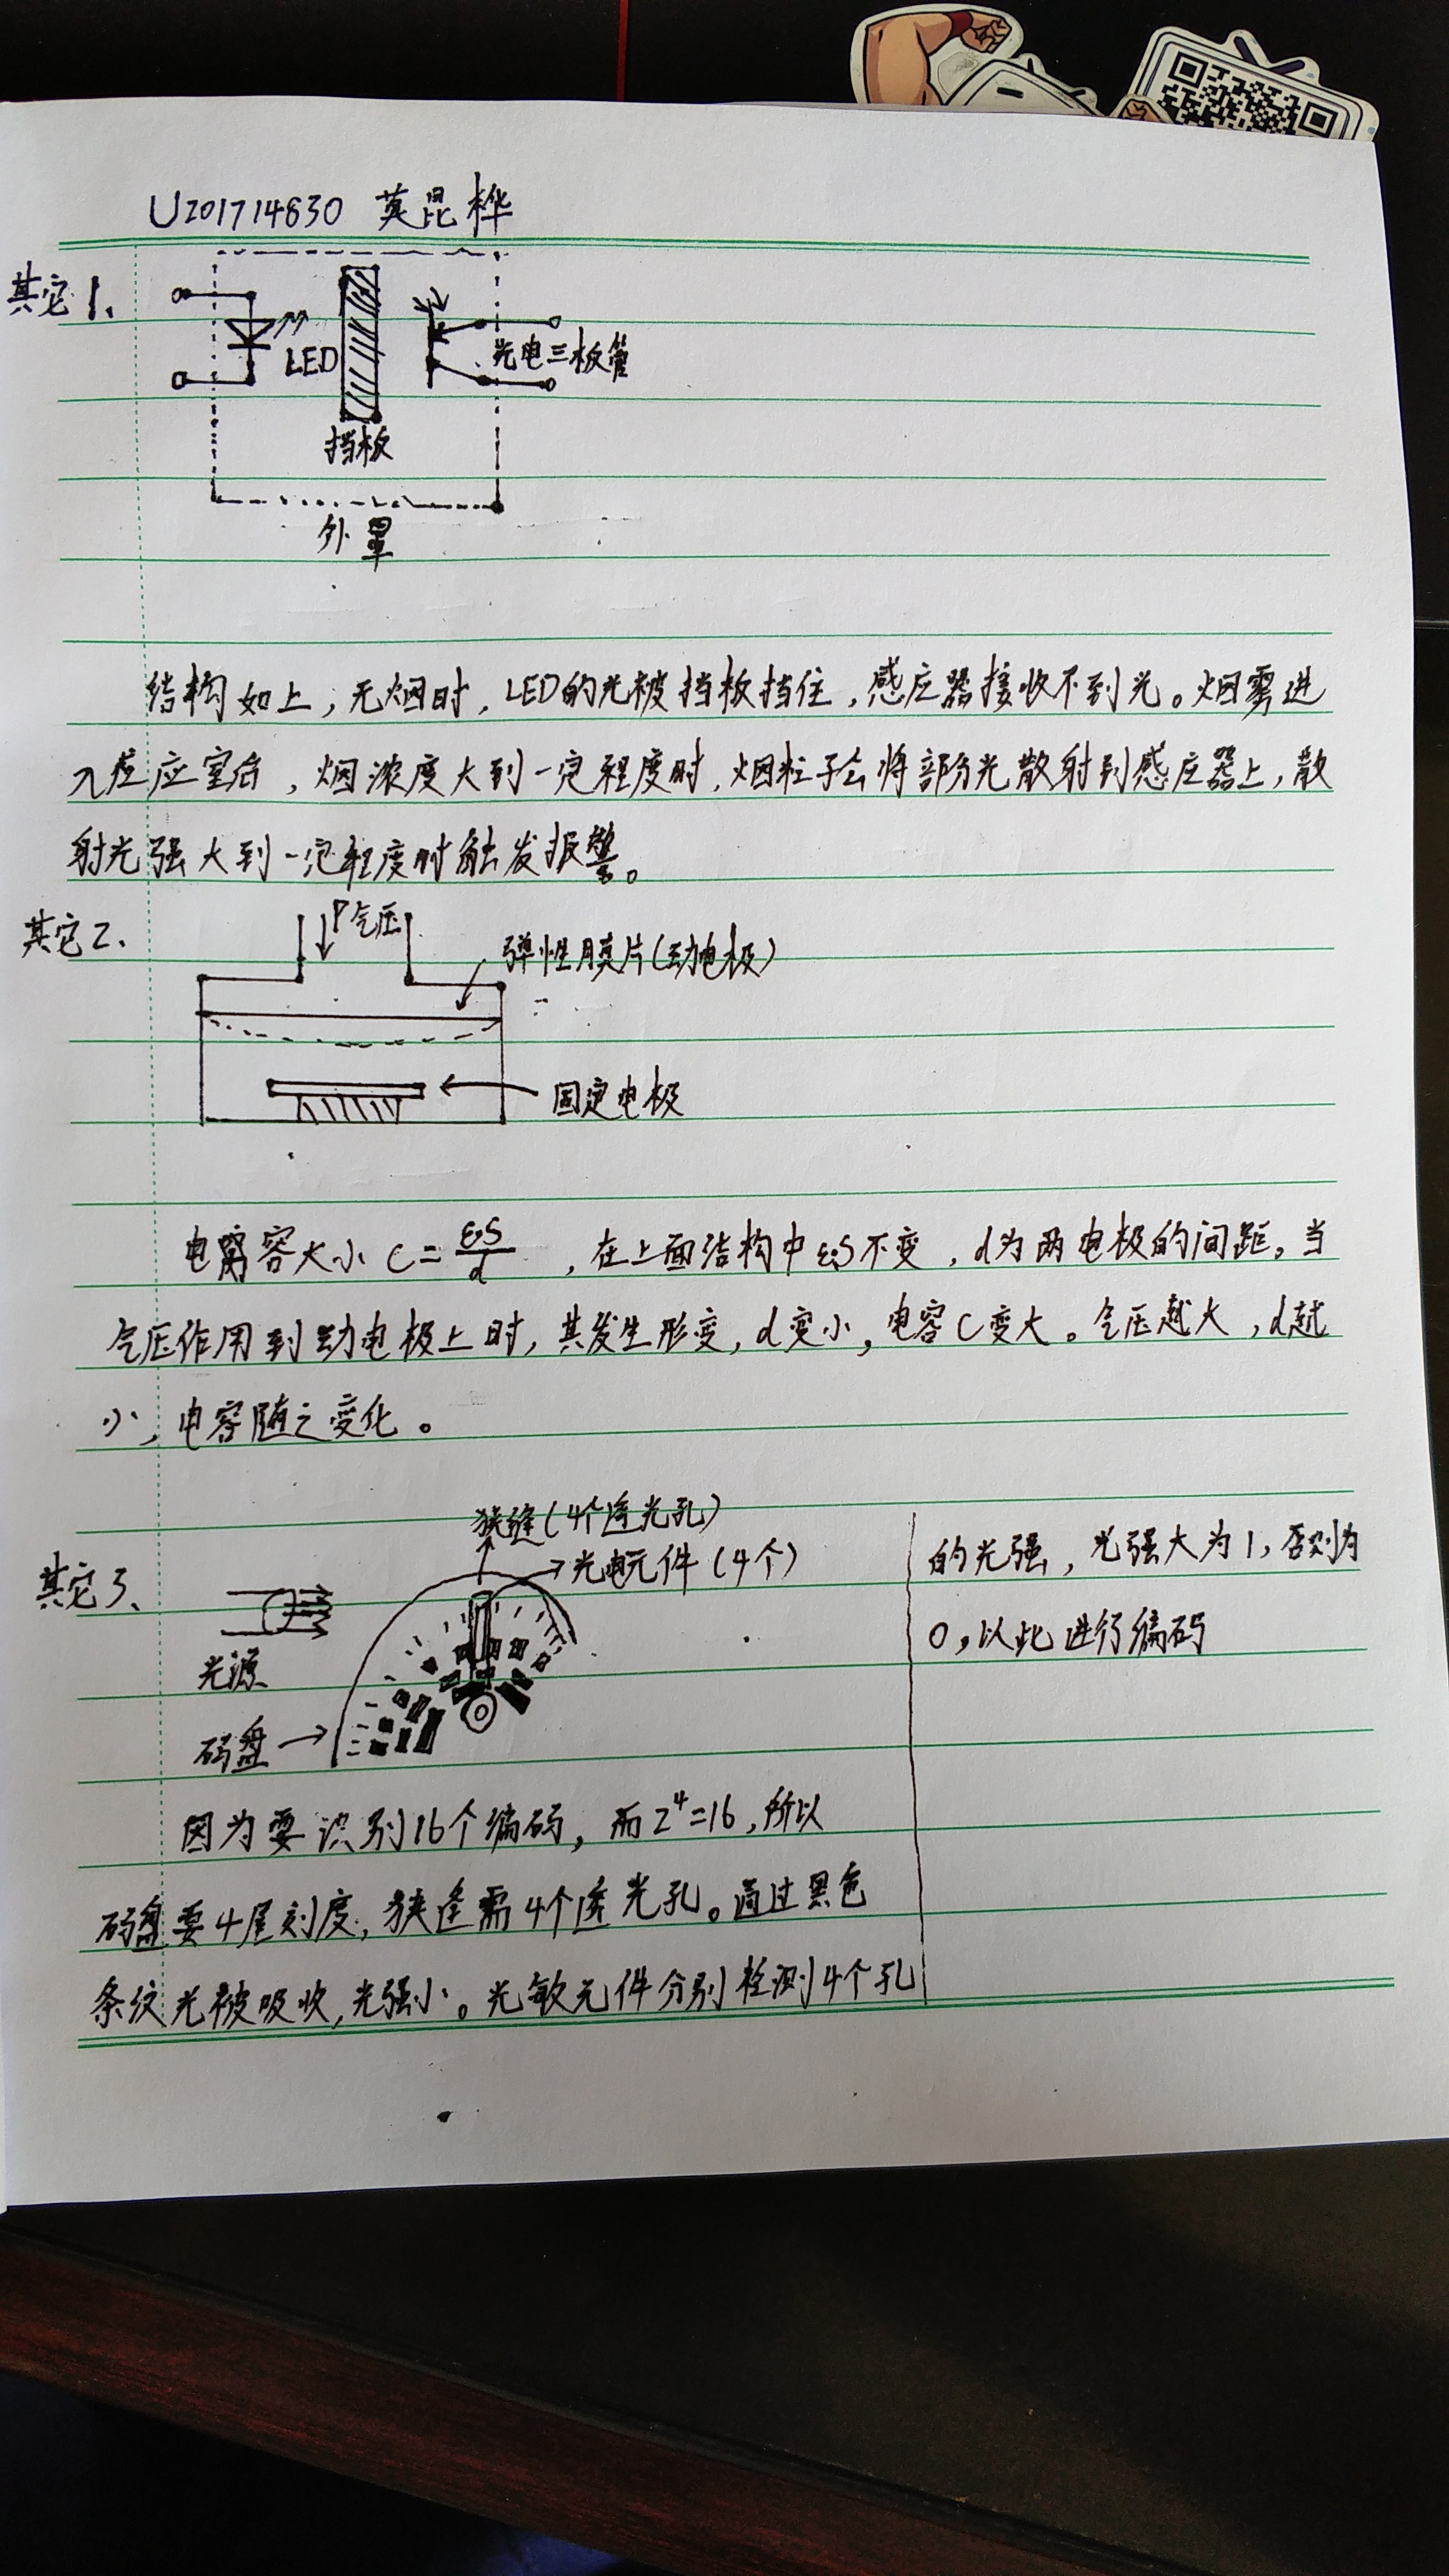 U201714630 莫昆桦
其它1、
LED
光电三极管
挡板
外罩
结构如上，无烟时，LED的光被挡板挡住，感应器接收不到光。烟雾进
入感应室后，烟浓度大到一定程度时，烟粒子会将部分光散射到感应器上，散
射光强大到一定程度时触发报警。
其它2、
P气压
弹性膜片(动电极)
固定电极
电容大小 C=εS/d ，在上面结构中εS不变，d为两电极的间距。当
气压作用到动电极上时，其发生形变，d变小，电容C变大。气压越大，d越
小，电容随之变化。
其它3、
狭缝(4个透光孔)
光电元件(4个)
光源
码盘
因为要识别16个编码，而2⁴=16，所以
码盘要4层刻度，狭逢需4个透光孔。通过黑色
条纹光被吸收，光强小。光敏元件分别检测4个孔
的光强，光强大为1，否则为
0，以此进行编码